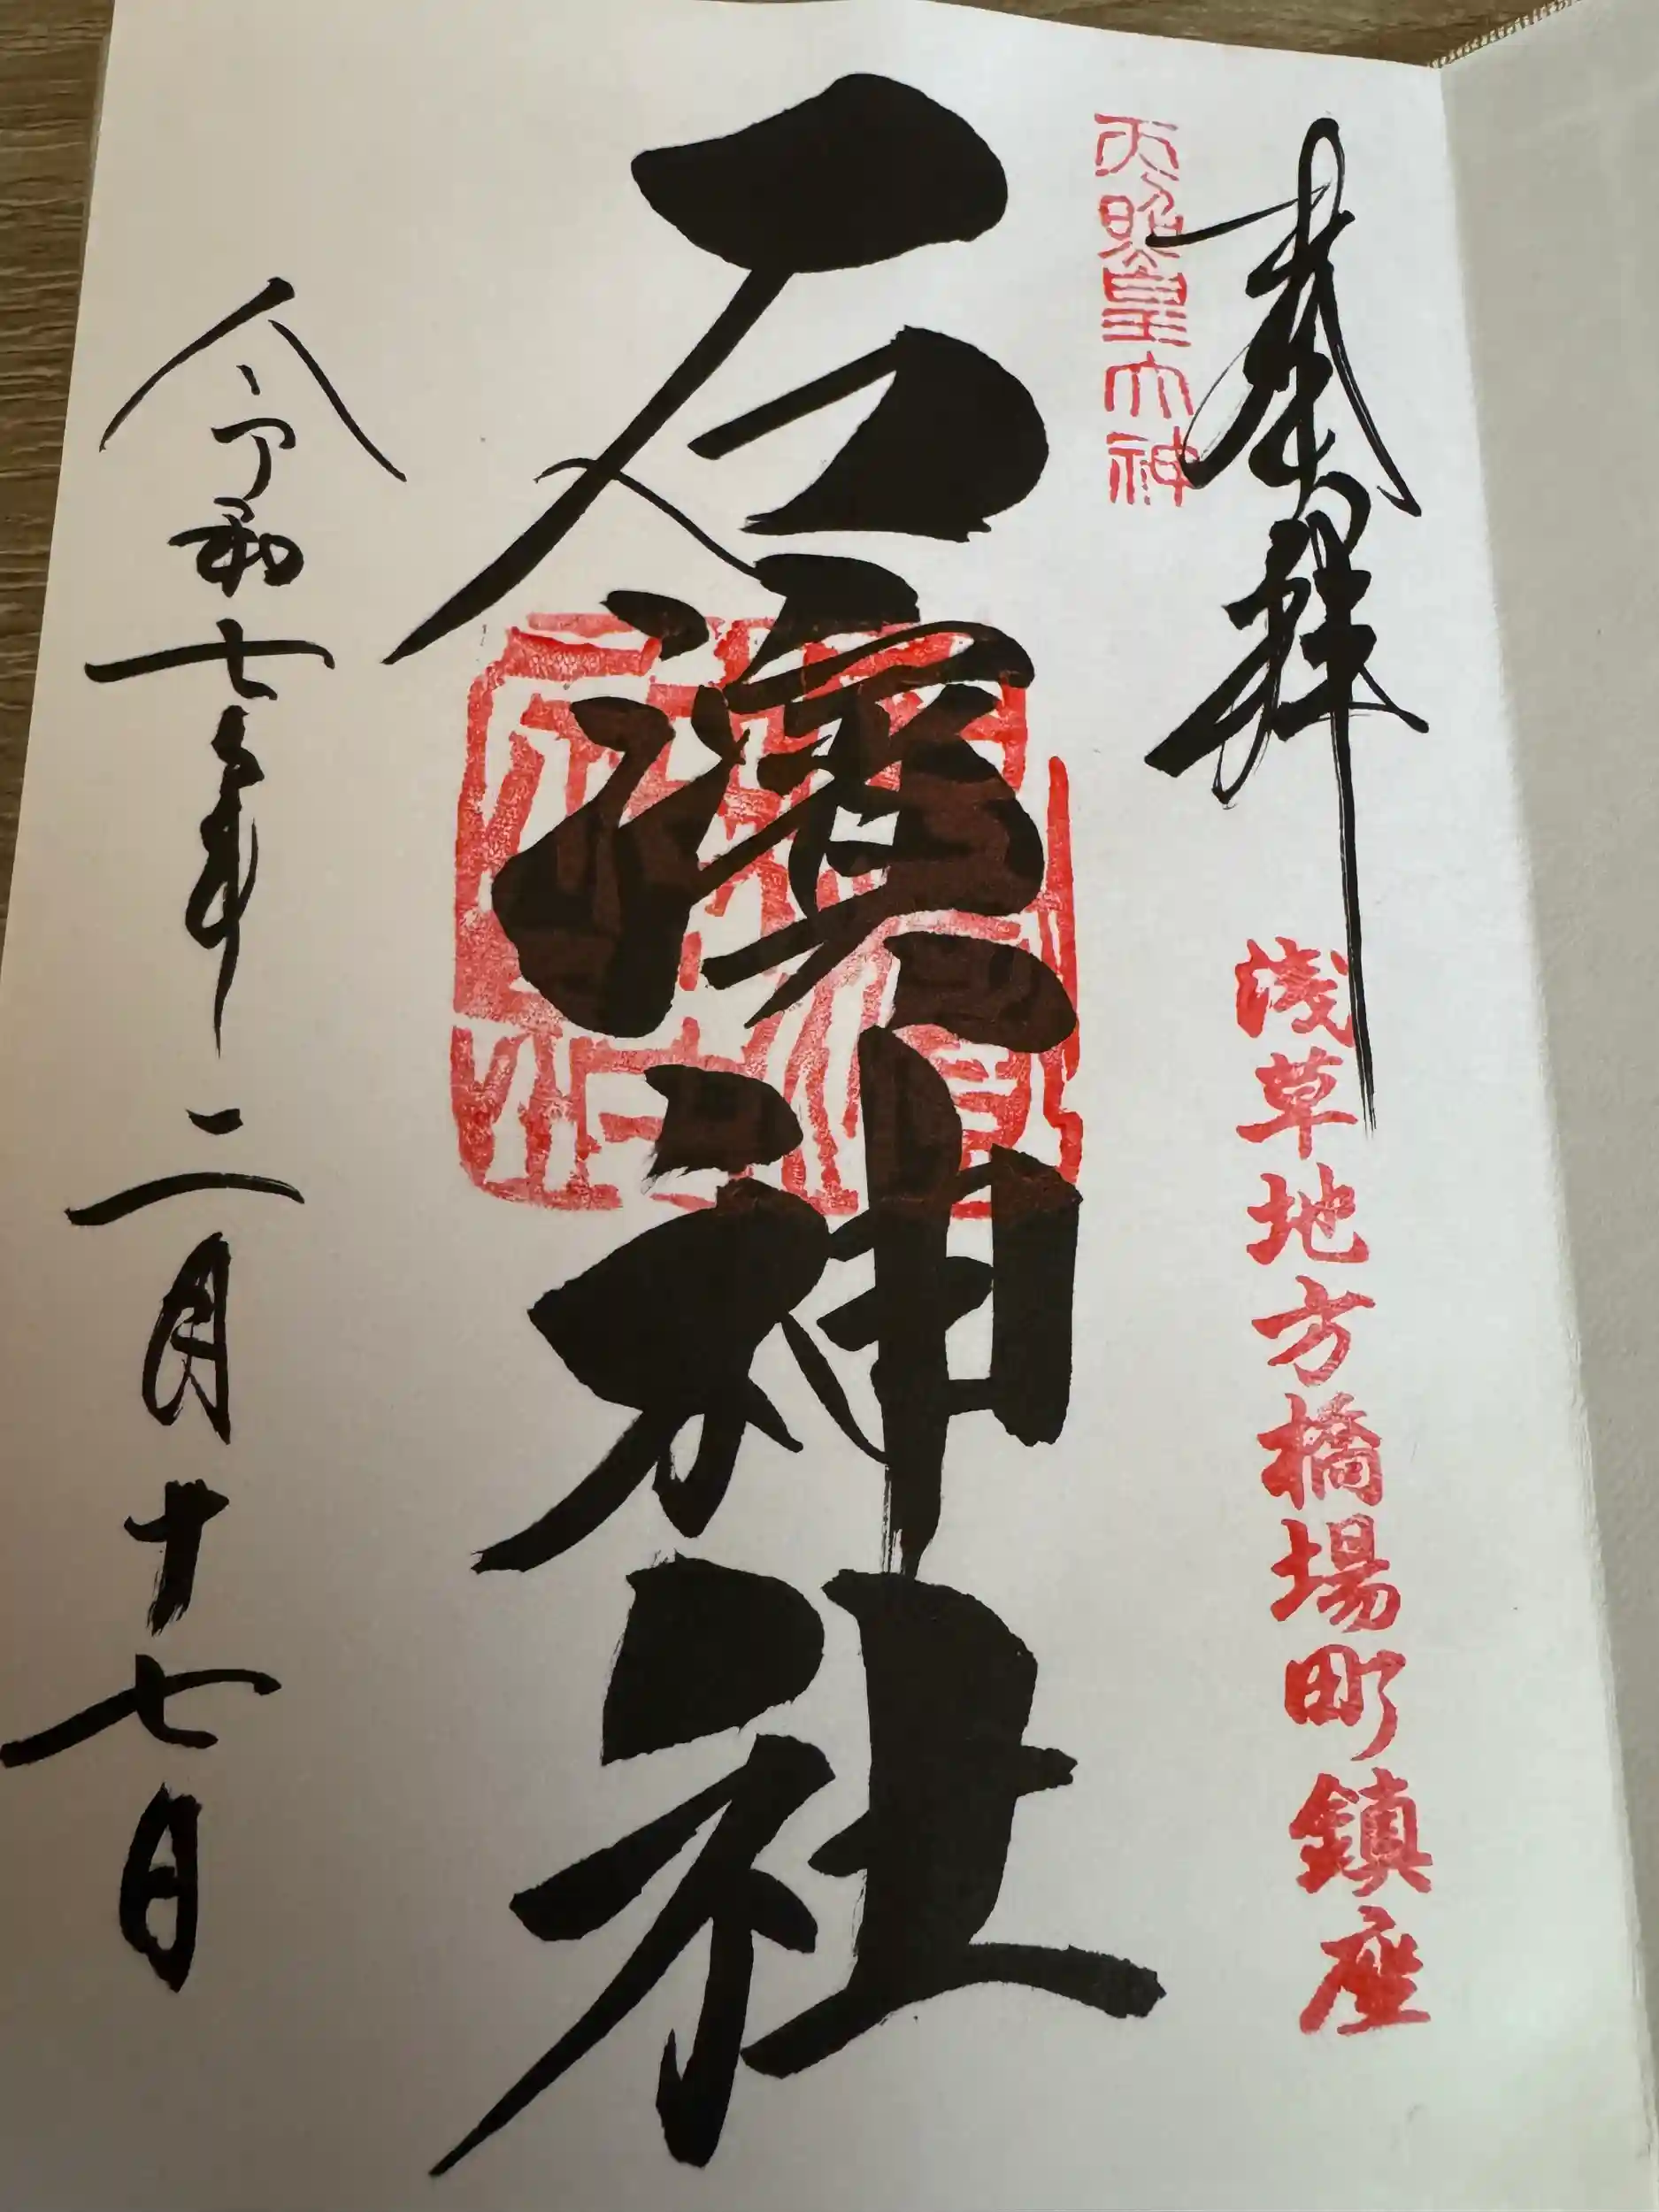 奉拝
浅草地方橋場町鎮座
天照皇大神
石濱神社
令和七年二月十七日